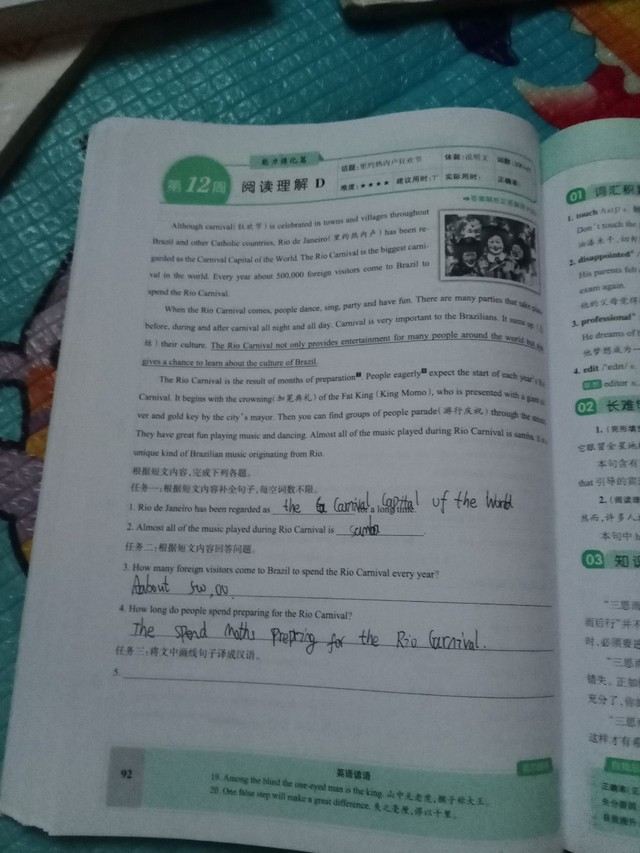 能力强化篇
第12周 阅读理解 D
话题:里约热内卢狂欢节 体裁:说明文 词数:
难度:★★★★ 建议用时:7' 实际用时: 正确率:
Although carnival(狂欢节) is celebrated in towns and villages throughout
Brazil and other Catholic countries, Rio de Janeiro(里约热内卢) has been re-
garded as the Carnival Capital of the World. The Rio Carnival is the biggest carni-
val in the world. Every year about 500,000 foreign visitors come to Brazil to
spend the Rio Carnival.
When the Rio Carnival comes, people dance, sing, party and have fun. There are many parties that take place
before, during and after carnival all night and all day. Carnival is very important to the Brazilians. It sums up
结) their culture. The Rio Carnival not only provides entertainment for many people around the world but also
gives a chance to learn about the culture of Brazil.
The Rio Carnival is the result of months of preparation. People eagerly expect the start of each year's Rio
Carnival. It begins with the crowning(加冕典礼) of the Fat King (King Momo), who is presented with a giant
ver and gold key by the city's mayor. Then you can find groups of people parade(游行庆祝) through the street.
They have great fun playing music and dancing. Almost all of the music played during Rio Carnival is samba. It is a
unique kind of Brazilian music originating from Rio.
根据短文内容,完成下列各题。
任务一:根据短文内容补全句子,每空词数不限。
1. Rio de Janeiro has been regarded as the Carnival Capital of the World a long time.
2. Almost all of the music played during Rio Carnival is samba.
任务二:根据短文内容回答问题。
3. How many foreign visitors come to Brazil to spend the Rio Carnival every year?
Aabout
4. How long do people spend preparing for the Rio Carnival?
The spend moths preprzing for the Rio Carnival.
任务三:将文中画线句子译成汉语。
5.
92
英语谚语
19. Among the blind the one-eyed man is the king. 山中无老虎,猴子称大王。
20. One false step will make a great difference. 失之毫厘,谬以千里。
01 词汇积
1. touch
Don't touch the
2. disappointed
His parents felt
exam again.
他的父母觉得
3. professional
He dreams of
他梦想成为一
4. edit /'edɪt/ v.
editor n.
02 长难
1. (完形填
它眼望金星地
本句含有
that 引导的宾
2. (阅读理
然而,许多人
本句中
03 知识
"三思而
而后行"并不
时,必须要进
"三思
错失。正如
充分了,你
"三思
这样才有